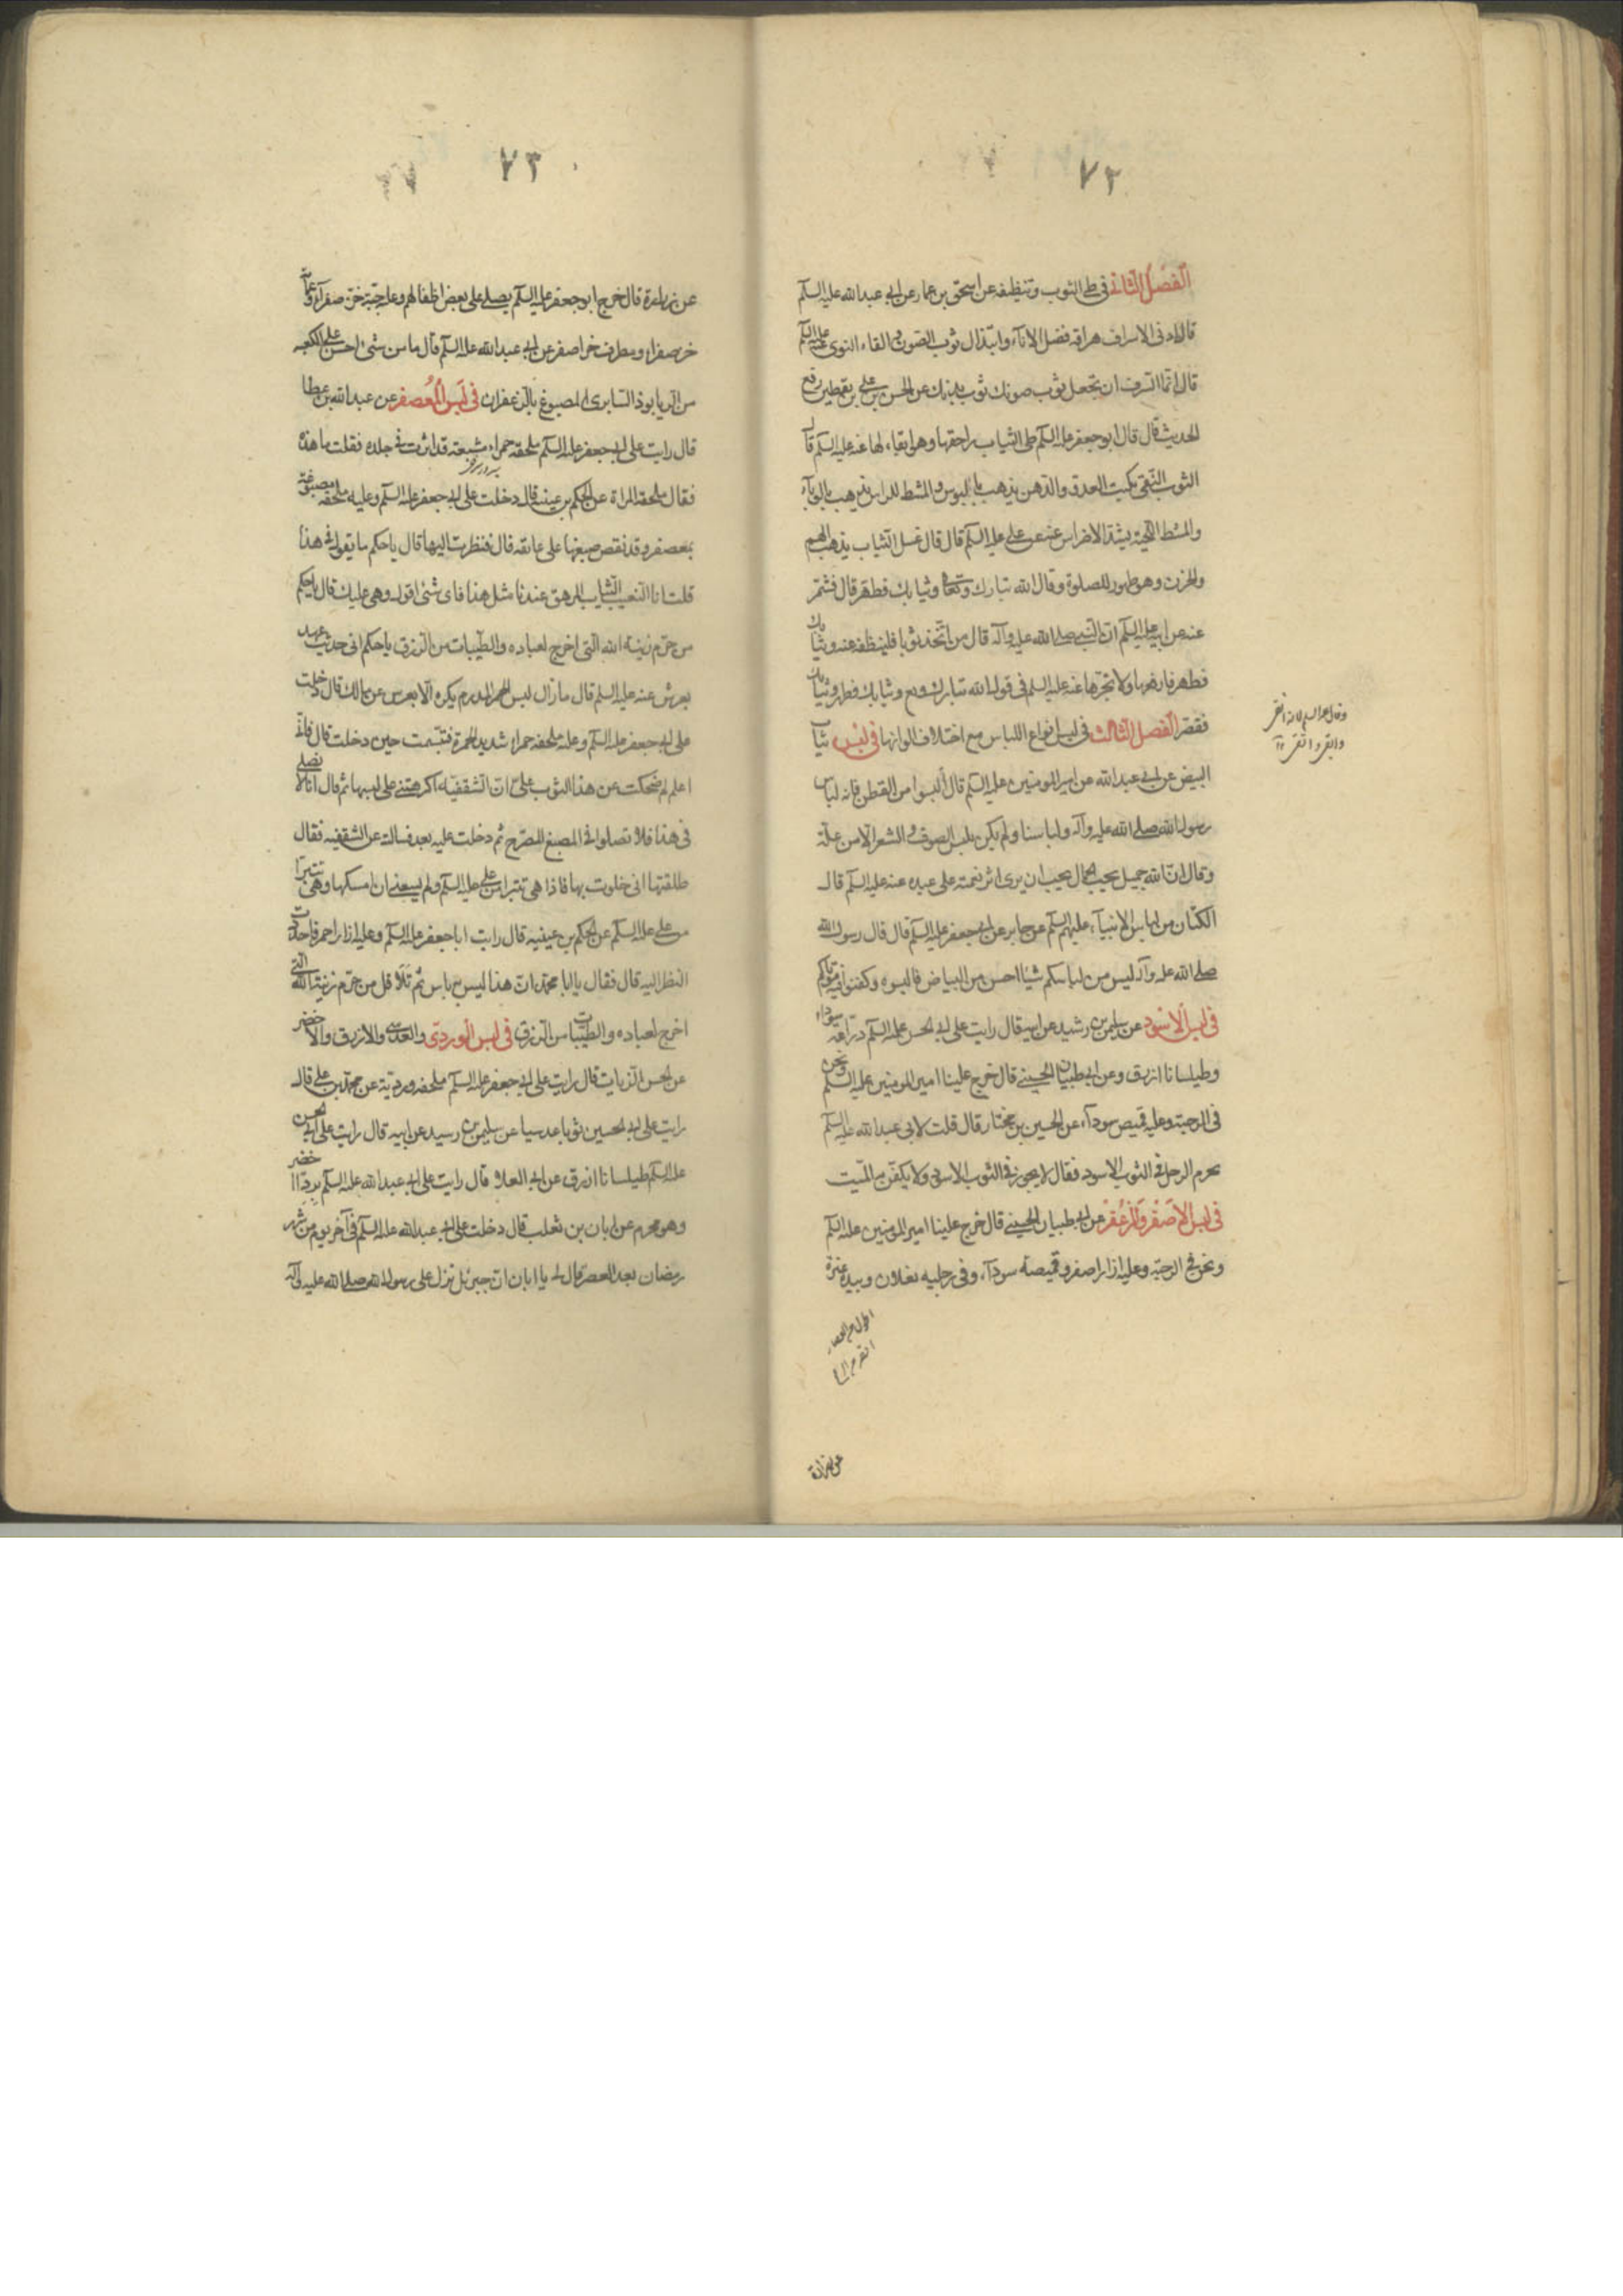 ٧٢
الفصل الثانى فى طى الثوب وتنظيفه عن اسحق بن عمار عن ابى عبدالله عليه السلم
قال ادنى الاسراف هراقة فضل الاناء وابتذال ثوب الصون والقاء النوى عنه عليه السلم
قال انما السرف ان تجعل ثوب صونك ثوب بذلتك عن الحسن بن على بن يقطين رفع
الحديث قال قال ابو جعفر عليه السلم طى الثياب راحتها وهو ابقاء لها عنه عليه السلم قال
الثوب النقى يكبت العدو والدهن يذهب بالبوس والمشط للراس يذهب بالوباء
والمشط للحية يشد الاضراس عنه عن على عليه السلم قال قال غسل الثياب يذهب الهم
والحزن وهو طهور للصلوة وقال الله تبارك وتعالى وثيابك فطهر قال فشمر
عنه عن ابيه عليه السلم ان النبى صلى الله عليه وآله قال من اتخذ ثوبا فلينظفه عنه وثيابك
فطهر فارفعها ولا تجرها عنه عليه السلم فى قول الله تبارك وتع وثيابك فطهر وثيابك
فقصر الفصل الثالث فى لبس انواع اللباس مع اختلاف الوانها فى لبس ثياب
البيض عن ابى عبدالله عن امير المومنين عليه السلم قال البسوا من القطن فانه لباس
رسول الله صلى الله عليه وآله ولباسنا ولم يكن يلبس الصوف والشعر الا من علة
وقال ان الله جميل يحب الجمال يحب ان يرى اثر نعمته على عبده عنه عليه السلم قال
الكتان من لباس الانبياء عليهم السلم عن جابر عن ابى جعفر عليه السلم قال قال رسول الله
صلى الله عليه وآله ليس من لباسكم شيئا احسن من البياض فالبسوه وكفنوا فيه موتاكم
فى لبس الاسود عن سليمن بن رشيد عن ابيه قال رايت على ابى الحسن عليه السلم دراعة سوداء
وطيلسانا ازرق وعن ابى ظبيان الجبنى قال خرج علينا امير المومنين عليه السلم ونحن
فى الرحبة وعليه قميص سوداء عن الحسين بن مختار قال قلت لابى عبدالله عليه السلم
يحرم الرجل فى الثوب الاسود فقال لا يجوز فى الثوب الاسود ولا يكفن به الميت
فى لبس الاصفر والمزعفر عن ابى ظبيان الجبنى قال خرج علينا امير المومنين عليه السلم
ونحن فى الرحبة وعليه ازار اصفر وقميصة سوداء وفى رجليه نعلان وبيده عنزة
عن زرارة
٧٣
عن زرارة قال خرج ابو جعفر عليه السلم يصلى على بعض اطفالهم وعليه جبة خز صفراء وعمامة
خز صفراء ومطرف خز اصفر عن ابى عبدالله عليه السلم قال ما من شىء احسن على الكعبه
من الريابوذ السابرى المصبوغ بالزعفران فى لبس المعصفر عن عبدالله بن عطا
قال رايت على ابى جعفر عليه السلم ملحفة حمراء مشبعة قد اثرت فى جلده فقلت ما هذه
فقال ملحفة المراة عن الحكم بن عيينه قال دخلت على ابى جعفر عليه السلم وعليه ملحفة مصبوغة
بعصفر وقد نقص صبغها على عاتقه قال فنظرت اليها قال يا حكم ما تقول فى هذا
قلت انا لنعيب الشاب المرهق عندنا مثل هذا فاى شئ اقول وهى عليك قال يا حكم
من حرم زينة الله التى اخرج لعباده والطيبات من الرزق يا حكم انى حديث عهد
بعرس عنه عليه السلم قال ما زال لبس الاحمر المفدم يكره الا بعرس عن مالك قال دخلت
على ابى جعفر عليه السلم وعليه ملحفة حمراء شديد الحمرة فتبسمت حين دخلت قال فانى
اعلم لم ضحكت من هذا الثوب على ان الثقفية اكرهتنى على لبسها ثم قال انا لا نصلى
فى هذا فلا تصلوا فى المصبغ المضرج ثم دخلت عليه بعد فسالته عن الثقفيه فقال
طلقتها انى خلوت بها فاذا هى تتبرا من على عليه السلم ولم يسعنى ان امسكها وهى تتبرا
من على عليه السلم عن الحكم بن عيينيه قال رايت ابا جعفر عليه السلم وعليه ازار احمر فاحددت
النظر اليه قال فقال يا ابا محمد ان هذا ليس به باس ثم تلا قل من حرم زينة الله التى
اخرج لعباده والطيبات من الرزق فى لبس الوردى والعدسى والازرق والاخضر
عن الحسن الزيات قال رايت على ابى جعفر عليه السلم ملحفة وردية عن محمد بن على قال
رايت على ابى الحسين ثوبا عدسيا عن سليمن بن رسيد عن ابيه قال رايت على ابى الحسن
عليه السلم طيلسانا ازرق عن ابى العلا قال رايت على ابى عبدالله عليه السلم بردا اخضر
وهو محرم عن ابان بن تغلب قال دخلت على ابى عبدالله عليه السلم فى آخر يوم من شهر
رمضان بعد العصر قال لى يا ابان ان جبرئيل نزل على رسول الله صلى الله عليه وآله